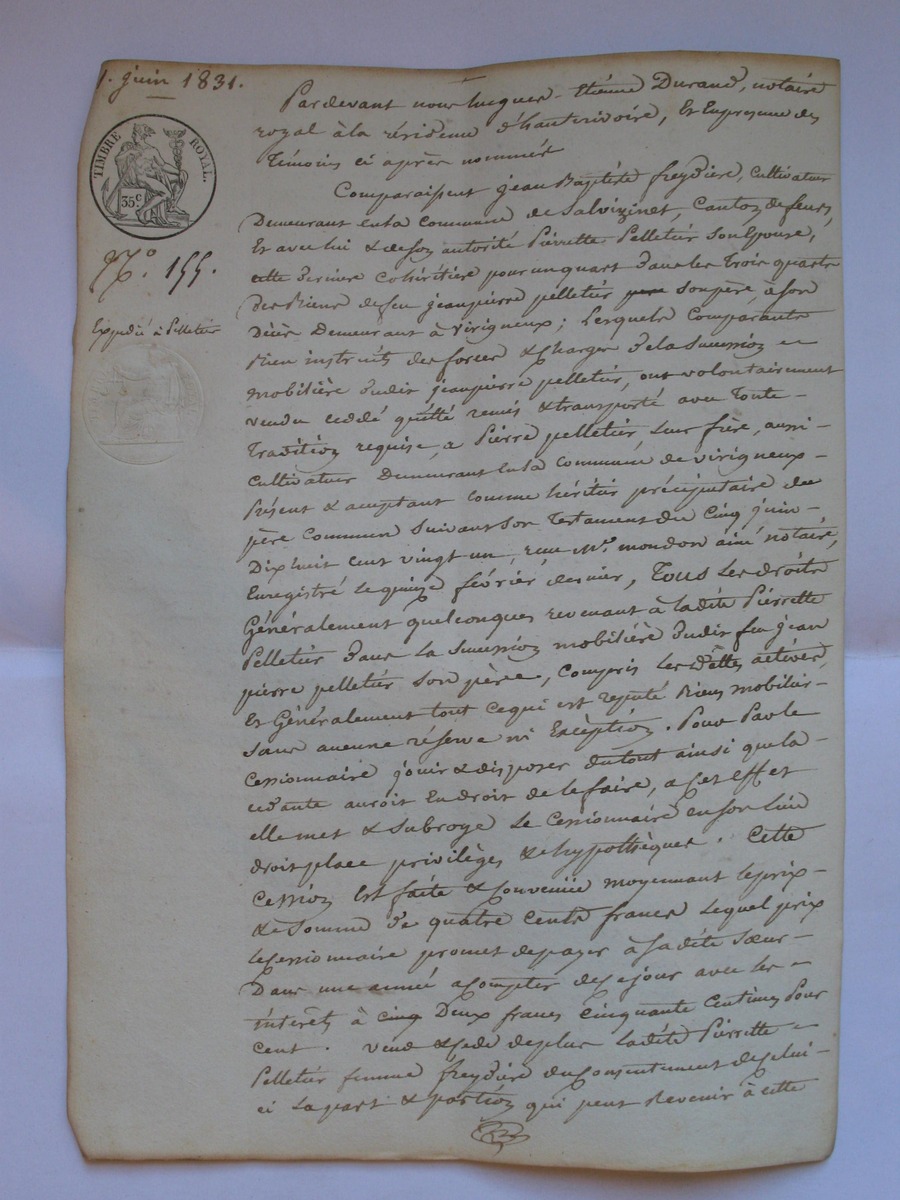 1. juin 1831.
TIMBRE ROYAL.
35c
No. 155.
Expédié à Pelletier
Pardevant nous hugues-Etienne Durand, notaire
royal à la résidence d'hauterivoire, Et En presence des
Témoins ci après nommés
Comparaissent jean Baptiste freydiere, cultivateur
Demeurant en la Commune de Salvizinet, Canton de feurs,
Et avec lui & de son autorité Pierrette Pelletier son Epouse,
cette derniere cohéritière pour un quart dans les Trois quarts
des Biens de feu jean pierre pelletier son père, à son
Décès Demeurant à Virigneux; Lesquels Comparants
Bien instruits des forces & Charges de la Succession
mobilière dudit jean pierre pelletier, ont volontairement
vendu cédé quitté remis & transporté avec Toute-
Tradition requise, a Pierre pelletier, leur frère, aussi-
cultivateur Demeurant en la Commune de Virigneux-
Présent & acceptant comme héritier préciputaire du
père Commun suivant son Testament du Cinq juin-
Dix huit cent vingt un, reçu Me. mondon ainé notaire,
Enregistré le quinze février dernier, Tous Les droits
Généralement quelconques revenant à ladite Pierrette
Pelletier dans La Succession mobilière dudit feu jean
pierre pelletier son père, compris Les Dettes actives,
Et Généralement tout ce qui est réputé Biens mobilier-
sans aucune réserve ni Exception. Pour Par le
Cessionnaire jouir & disposer du tout ainsi que la-
cédante auroit En droit de le faire, a Cet effet
elle met & subroge Le Cessionnaire en son lieu
droit place privilèges & hypothèques. Cette
Cession Est faite & Convenue moyennant le prix-
& Somme de quatre Cents francs Lequel prix
le Cessionnaire promet de payer à sa dite Sœur-
Dans une année a compter de ce jour avec les
intérêts à cinq Deux francs cinquante Centimes Pour
cent. Vend & Cede de plus La dite Pierrette
Pelletier femme freydiere du Consentement de celui-
ci La part & portion qui peut Revenir à cette